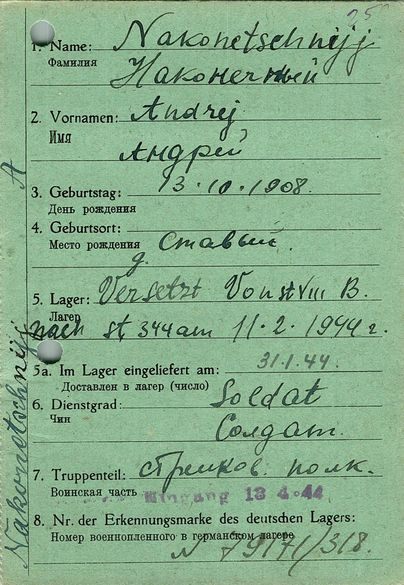 25
1. Name: Nakonetschnijj
Фамилия Наконечный
2. Vornamen: Andrej
Имя
Андрей
3. Geburtstag: 13.10.1908.
День рождения
4. Geburtsort:
Место рождения д. Ставый.
5. Lager: Versetzt Von st VIII B.
Лагер
nach st 344 am 11.2.1944 г.
5a. Im Lager eingeliefert am: 31.1.44.
Доставлен в лагер (число)
6. Dienstgrad: Soldat
Чин
Солдат.
7. Truppenteil: стрелков. полк.
Воинская часть Eingang 13 4.44
8. Nr. der Erkennungsmarke des deutschen Lagers:
Номер военнопленного в германском лагере
N 79171/318.
Nakonetschnijj A